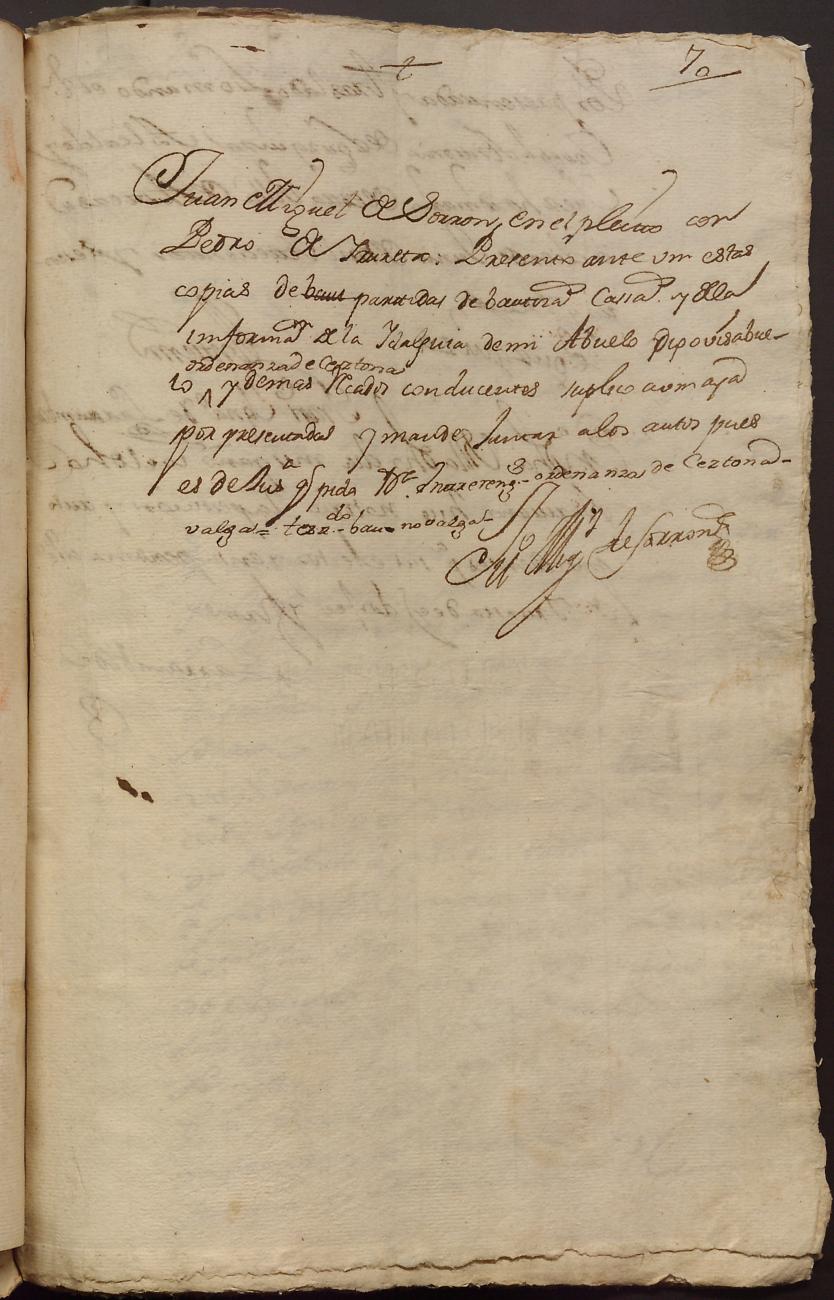 70
Juan Miguel de Sorron, en el pleito con
Pedro de Iruretta: Presento ante vm estas
copias de baut partidas de bautizas. Cassas. y de la
informaz.on de la Idalguia de mi Abuelo
ordenanza de Cestona
lo y demas Recados conducentes suplico a vm aya
por presentadas y mande Juntar a los autos pues
es de Jus.a q pido ordenanza de Cestona
valga= test.do bau no valga
Ju.o Mig.l de Sorron